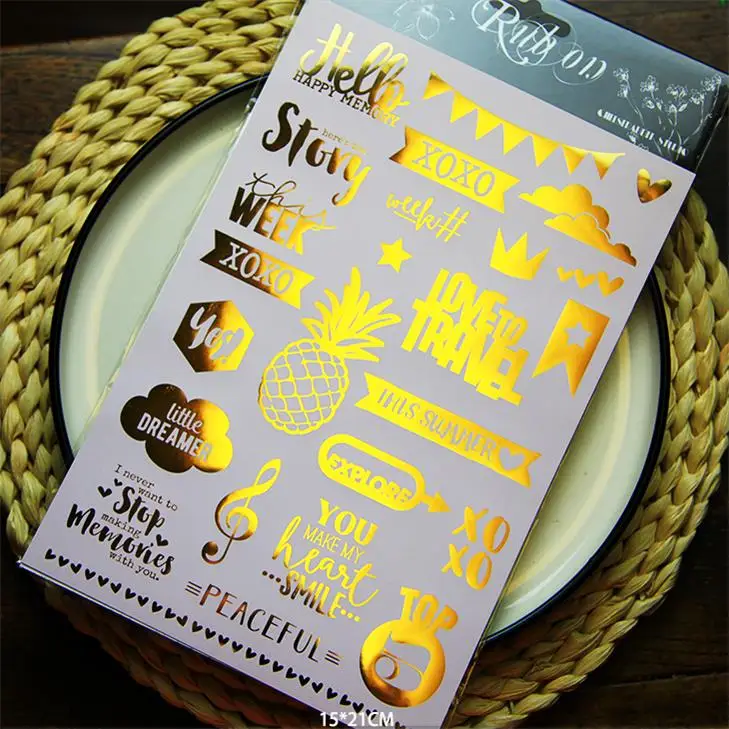 Rub on
Hello
HAPPY MEMORY
Story
here's the
XOXO
this
WEEK
XOXO
LOVE TO
TRAVEL
Yes!
THIS SUMMER
little
DREAMER
EXPLORE
I never
want to
Stop
making
Memories
with you.
YOU
MAKE MY
heart
...SMILE...
XO
XO
PEACEFUL
TOP
15*21CM